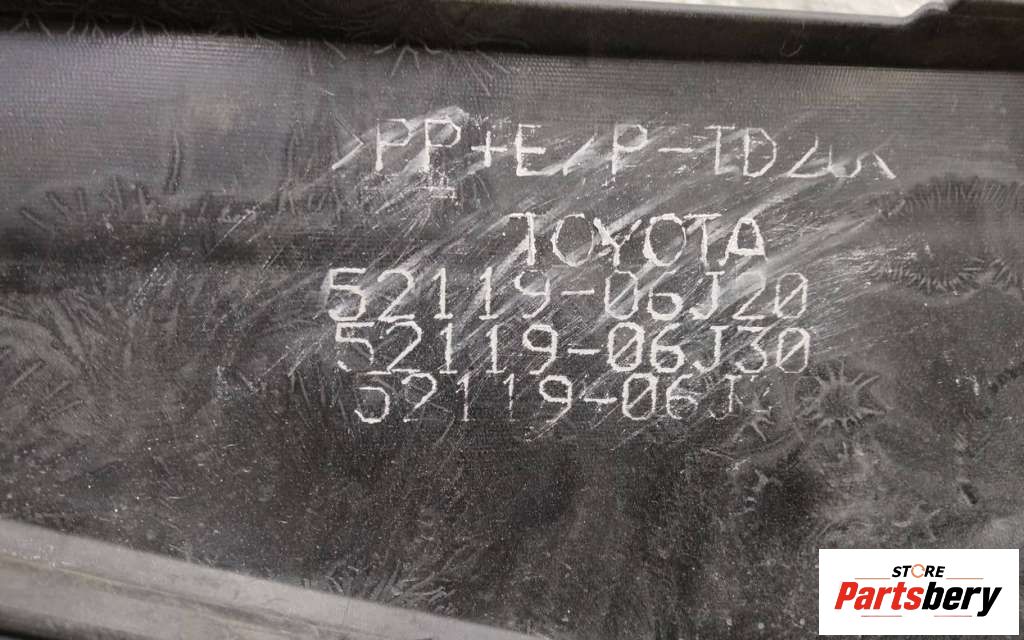 >PP+E/P-TD
TOYOTA
52119-06J20
52119-06J30
52119-06J
STORE
Partsbery